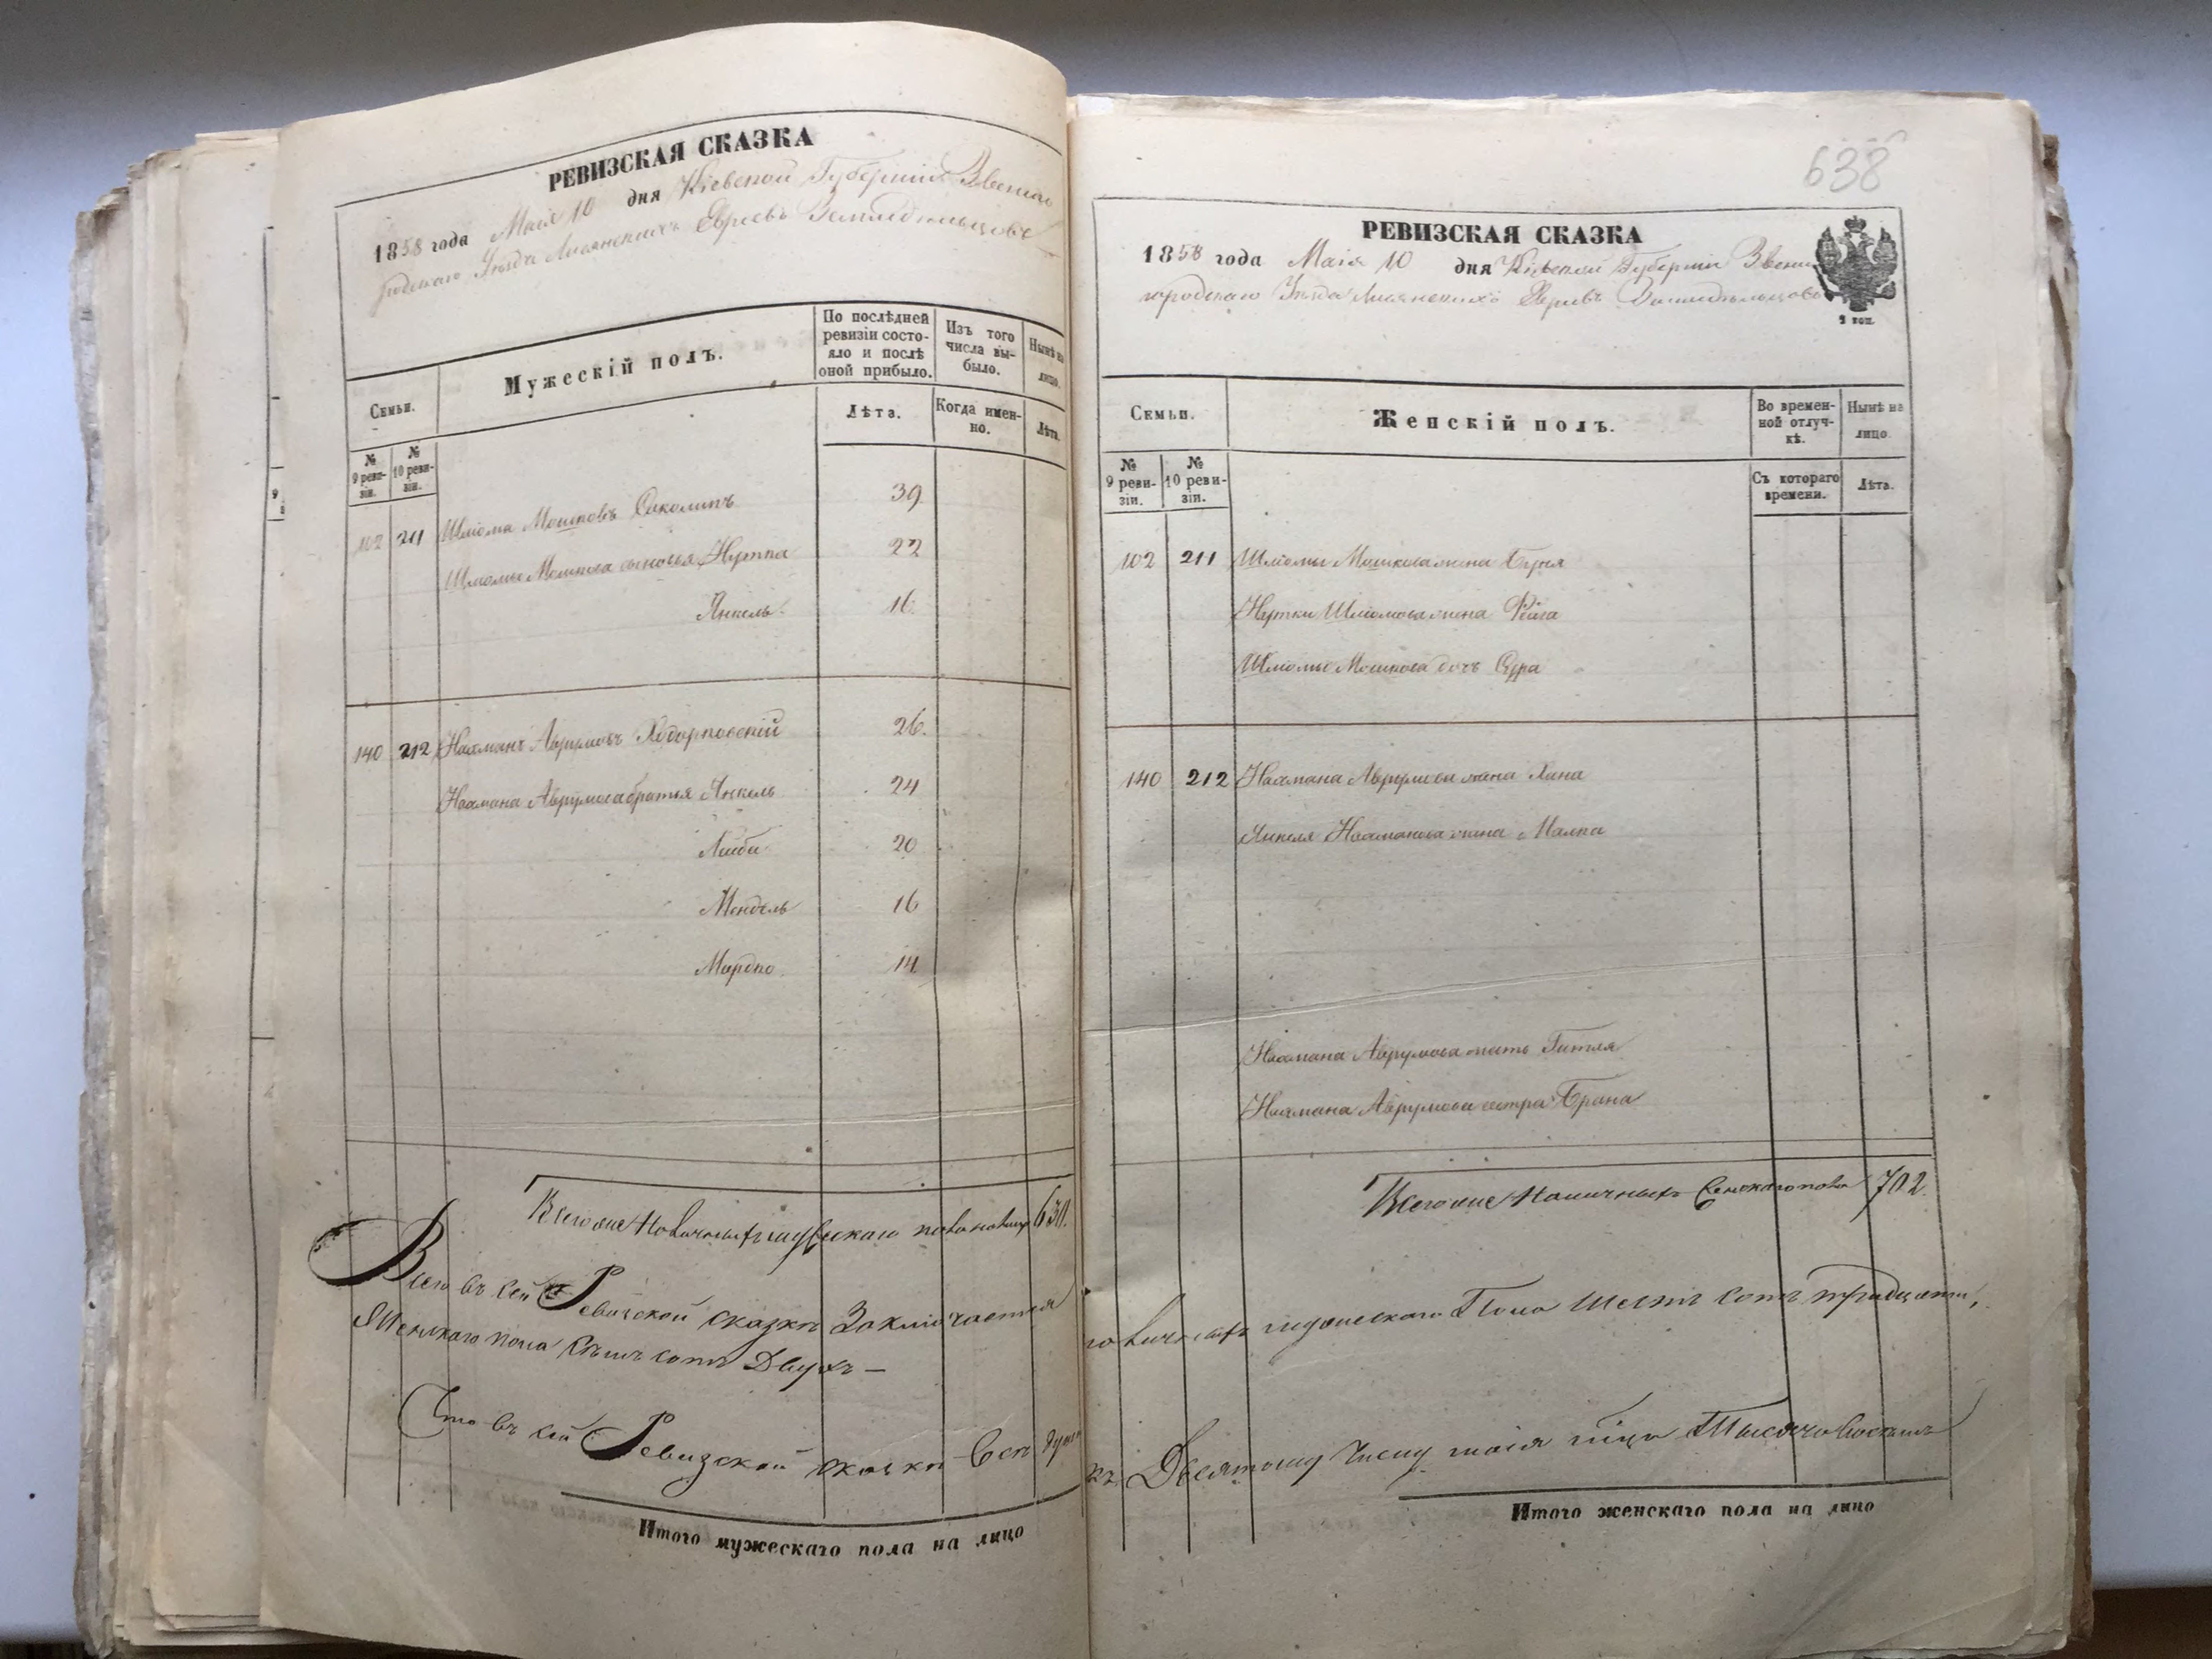 РЕВИЗСКАЯ СКАЗКА
1858 года Маія 10 дня Кіевской Губерніи Звениго
родскаго Уѣзда Лисянскихъ Евреевъ Земледѣльцовъ
Семьи.
Мужескій полъ.
По послѣдней ревизіи состояло и послѣ оной прибыло.
Изъ того числа выбыло.
Нынѣ на лицо.
№ 9 ревизіи.
№ 10 ревизіи.
Лѣта.
Когда именно.
Лѣта.
102 211 Шлiома Мошковъ Соколикъ 39
Шлiомы Мошкова сыновья Нутка 22
Янкель 16
140 212 Нахманъ Аврумовъ Ходорковскій 26.
Нахмана Аврумова братья Янкель 24
Лейба 20
Мендель 16
Мардко 14
Всего же наличныхъ мужескаго пола 630.
Всего въ сей Ревизской сказкѣ Заключается
Женскаго пола Семь сотъ Двухъ —
Что въ сей Ревизской сказкѣ всѣ души
Итого мужескаго пола на лицо
638
РЕВИЗСКАЯ СКАЗКА
1858 года Маія 10 дня Кіевской Губерніи Звени
городскаго Уѣзда Лисянскихъ Евреевъ Земледѣльцовъ
Семьи.
Женскій полъ.
Во временной отлучкѣ.
Нынѣ на лицо.
№ 9 ревизіи.
№ 10 ревизіи.
Съ котораго времени.
Лѣта.
102 211 Шлiомы Мошкова жена Буня
Нутки Шлiомова жена Фейга
Шлiомы Мошкова дочь Сура
140 212 Нахмана Аврумова жена Хана
Янкеля Нахманова жена Малка
Нахмана Аврумова мать Гитля
Нахмана Аврумова сестра Брана
Всего же наличныхъ женскаго пола 702.
наличныхъ мужескаго Пола Шесть сотъ тридцати,
къ Десятому Числу маія тысяча восемь
Итого женскаго пола на лицо